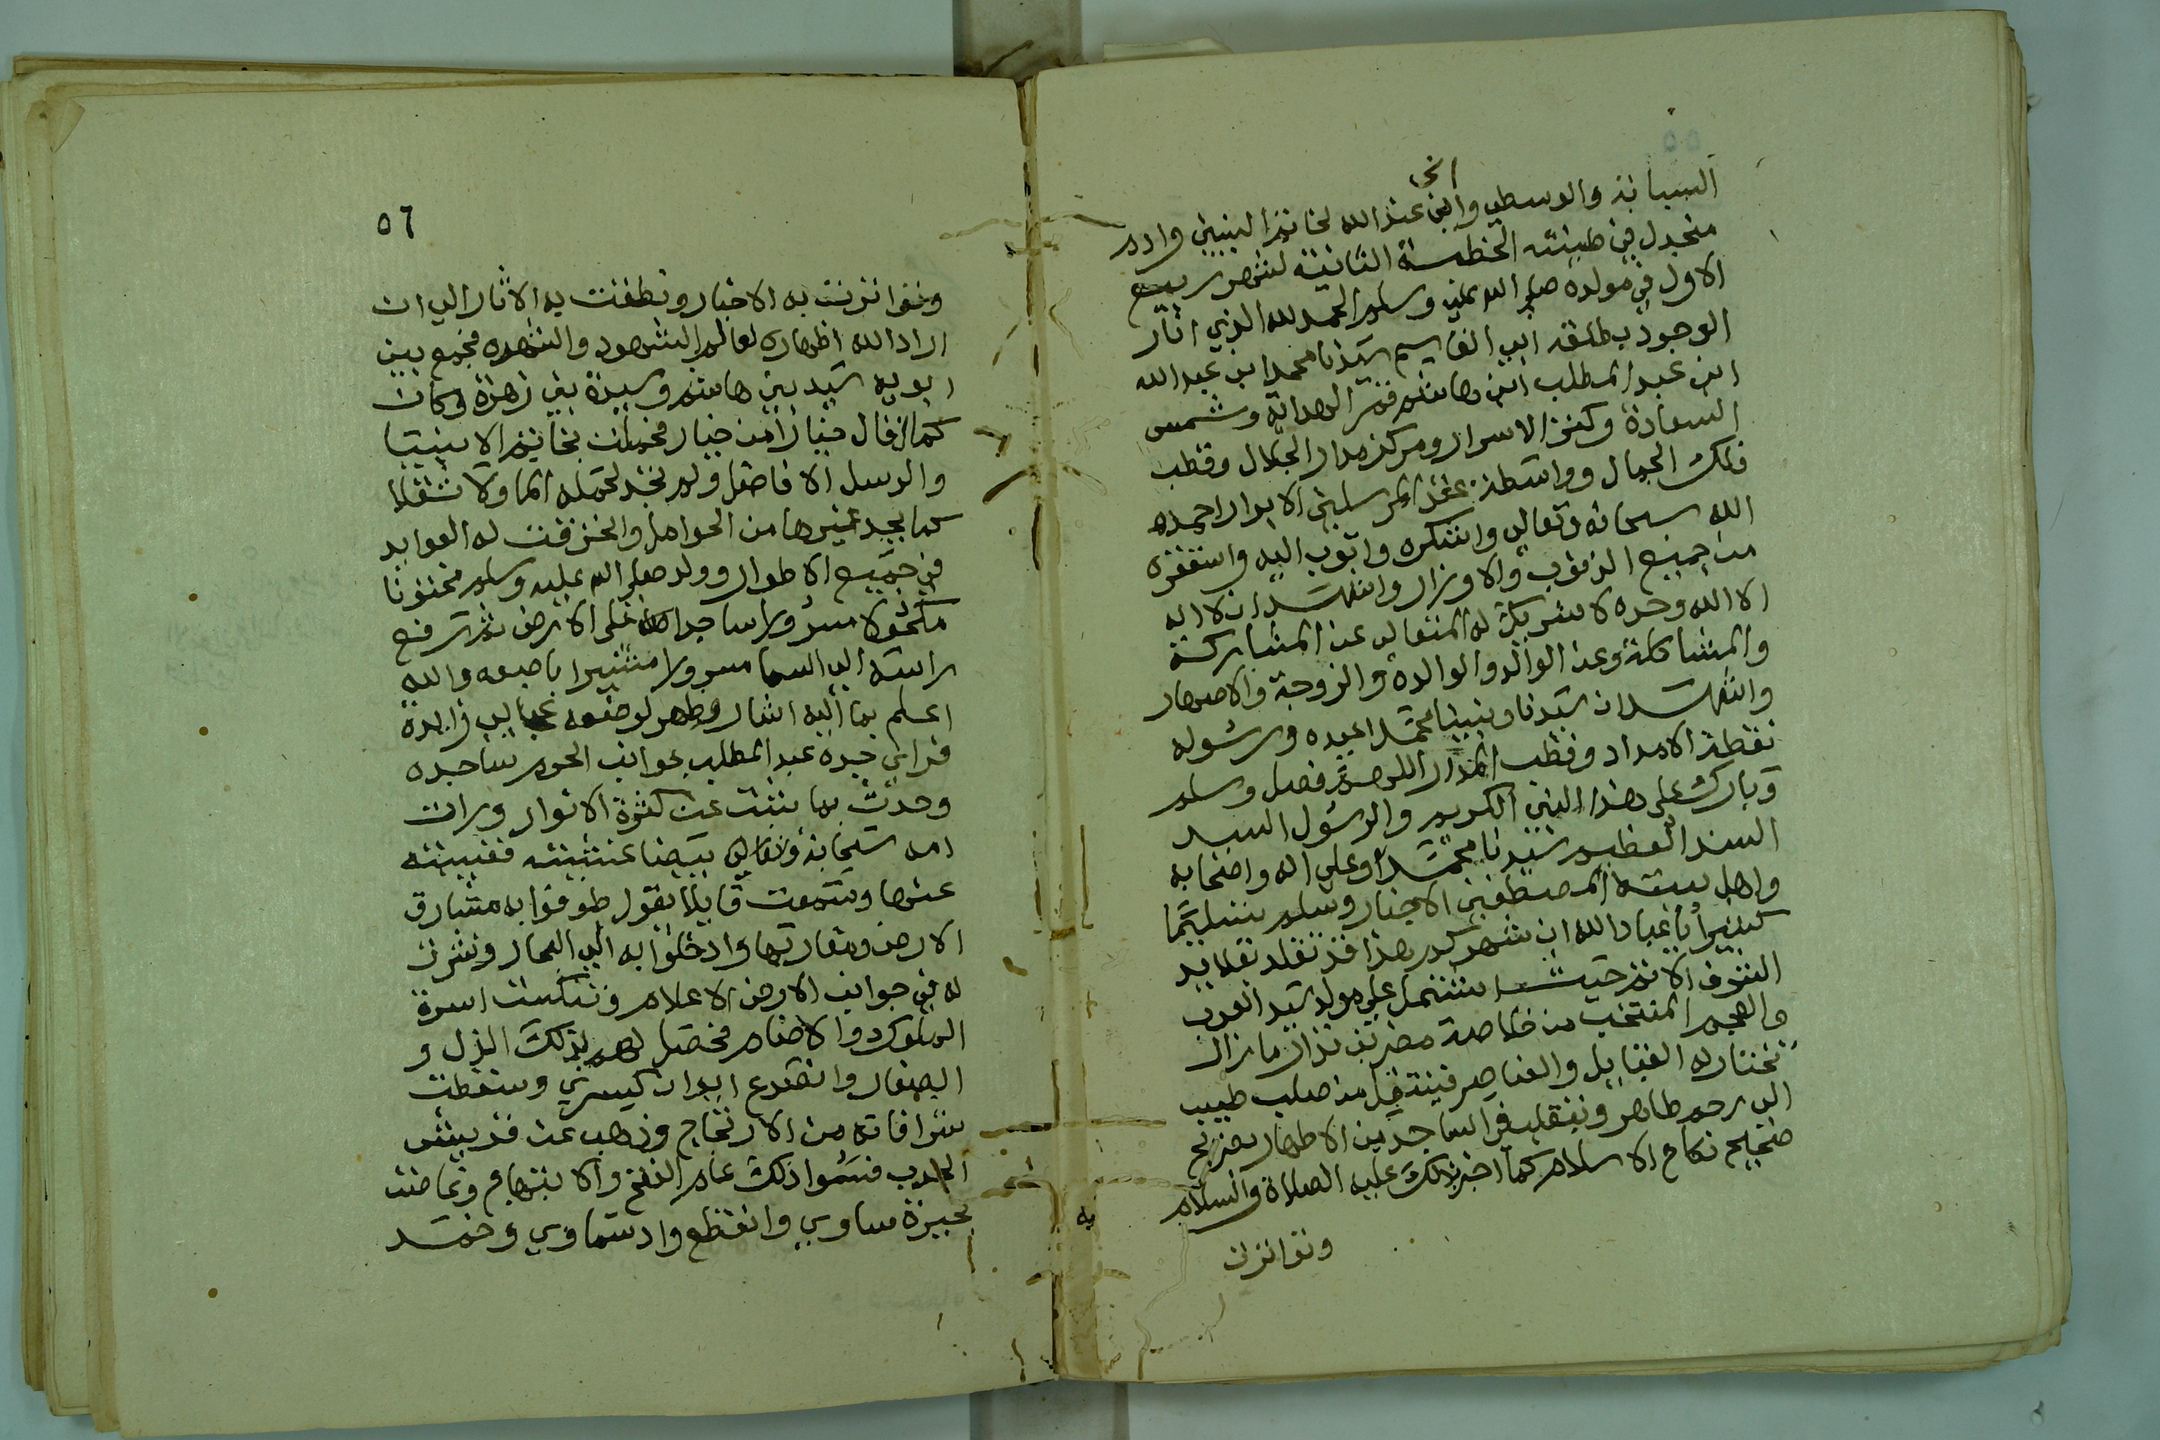 السبابة والوسطى واني عند الله لخاتم النبيين وادم
منجدل في طينته الخطبة الثانية لشهر ربيع
الاول في مولده صلى الله عليه وسلم الحمد لله الذي انار
الوجود بطلعة ابي القاسم سيدنا محمد ابن عبد الله
ابن عبد المطلب ابن هاشم قمر الهداية وشمس
السعادة وكنز الاسرار ومركز مدار الجلال وقطب
فلك الجمال وواسطة عقد المرسلين الابرار احمده
الله سبحانه وتعالى واشكره واتوب اليه واستغفره
من جميع الذنوب والاوزار واشهد ان لا اله
الا الله وحده لا شريك له المتعالي عن المشاركة
والمشاكلة وعن الوالد والوالدة والزوجة والاصهار
واشهد ان سيدنا ونبينا محمدا عبده ورسوله
نقطة الامداد وقطب المدار اللهم فصل وسلم
وبارك على هذا النبي الكريم والرسول السيد
السند العظيم سيدنا محمد وعلى اله واصحابه
واهل بيته المصطفين الاخيار وسلم تسليما
كثيرا يا عباد الله ان شهركم هذا قد تقلد تقلايد
الشرف الاتم حيث اشتمل على مولد سيد العرب
والعجم المنتخب من خلاصة مضر بن نزار ما زال
تختار له القبايل والعناصر فينتقل من صلب طيب
الى رحم طاهر وتقلب في الساجدين الاطهار بصريح
صحيح نكاح الاسلام كما اخبر بذلك عليه الصلاة والسلام
وتواترت
٥٦
وتواترت به الاخبار ونطقت به الاثار الى ان
اراد الله اظهاره لعالم الشهود والشهده فجمع بين
ابويه سيد بني هاشم وسيدة بني زهرة وكان
كما قال خيارا من خيار فحملت بخاتم الانبيا
والرسل الافاضل ولم تجد لحمله الما ولا ثقلا
كما يجد غيرها من الحوامل وانخرقت له العوايد
في جميع الاطوار وولد صلى الله عليه وسلم مختونا
مكحولا مسرورا ساجدا على الارض ثم رفع
راسه الى السما مسرورا مشيرا باصبعه والله
اعلم بما اليه اشار وظهر لوضعه عجايب زايدة
فراى جده عبد المطلب جوانب الحرم ساجده
وحدث بما ينبت عن كثرة الانوار ورات
امه سحابة بيضا غشيته فغيبته
عنها وسمعت قايلا يقول طوفوا به مشارق
الارض ومغاربها وادخلوا به الى البحار ونشرت
له في جوانب الارض الاعلام ونكست اسرة
الملوك والاصنام فحصل لهم بذلك الذل و
الصغار وانصدع ايوان كيسرى وسقطت
شرافاته من الارتجاج وذهب عن قريش
الجدب فسموا ذلك عام الفتح والابتهاج وغاضت
بحيرة ساوي وانقطع واد سماوي وخمد